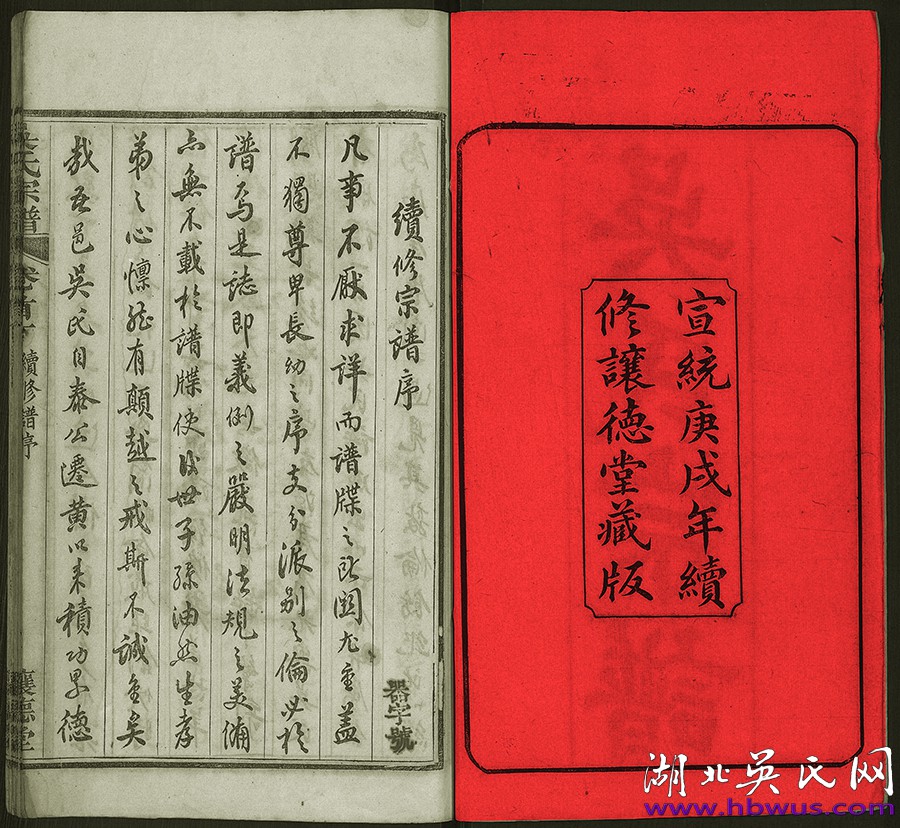 宣統庚戌年續
修讓德堂藏版
續修宗譜序
器字號
凡事不厭求詳而譜牒之所關尤重蓋
不獨尊卑長幼之序支分派别之倫必於
譜焉是誌即義例之嚴明法規之美備
亦無不載於譜牒使後世子孫油然生孝
弟之心懍然有顛越之戒斯不誠重矣
哉吾邑吳氏自泰公遷黄以来積功累德
吳氏宗譜
卷首下
續修譜序
讓德堂
湖北吴氏网
www.hbwus.com